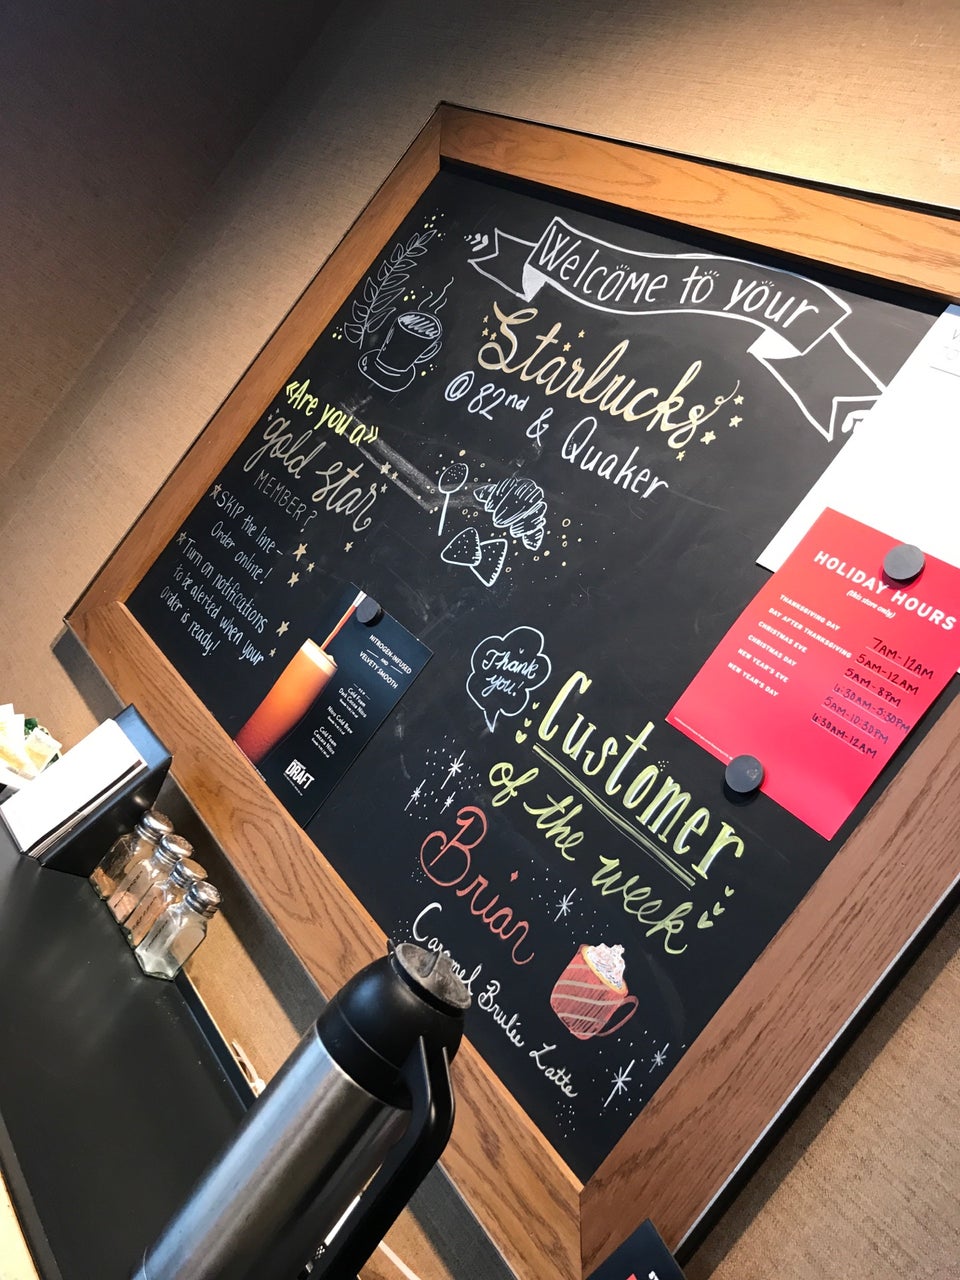 Welcome to your
Starbucks
@ 82nd & Quaker
«Are you a»
gold star
MEMBER?
Skip the line -
Order online!
Turn on notifications
to be alerted when your
Order is ready!
NITROGEN-INFUSED
AND
VELVETY SMOOTH
Cold Foam
Nitro Cold Brew
Cold Foam
DRAFT
HOLIDAY HOURS
(this store only)
THANKSGIVING DAY 7AM-12AM
DAY AFTER THANKSGIVING 5AM-12AM
CHRISTMAS EVE 5AM-8PM
CHRISTMAS DAY 6:30AM-5:30PM
NEW YEAR'S EVE 5AM-10:30PM
NEW YEAR'S DAY 6:30AM-12AM
Thank
you!
Customer
of the week
Brian
Caramel Brulée Latte